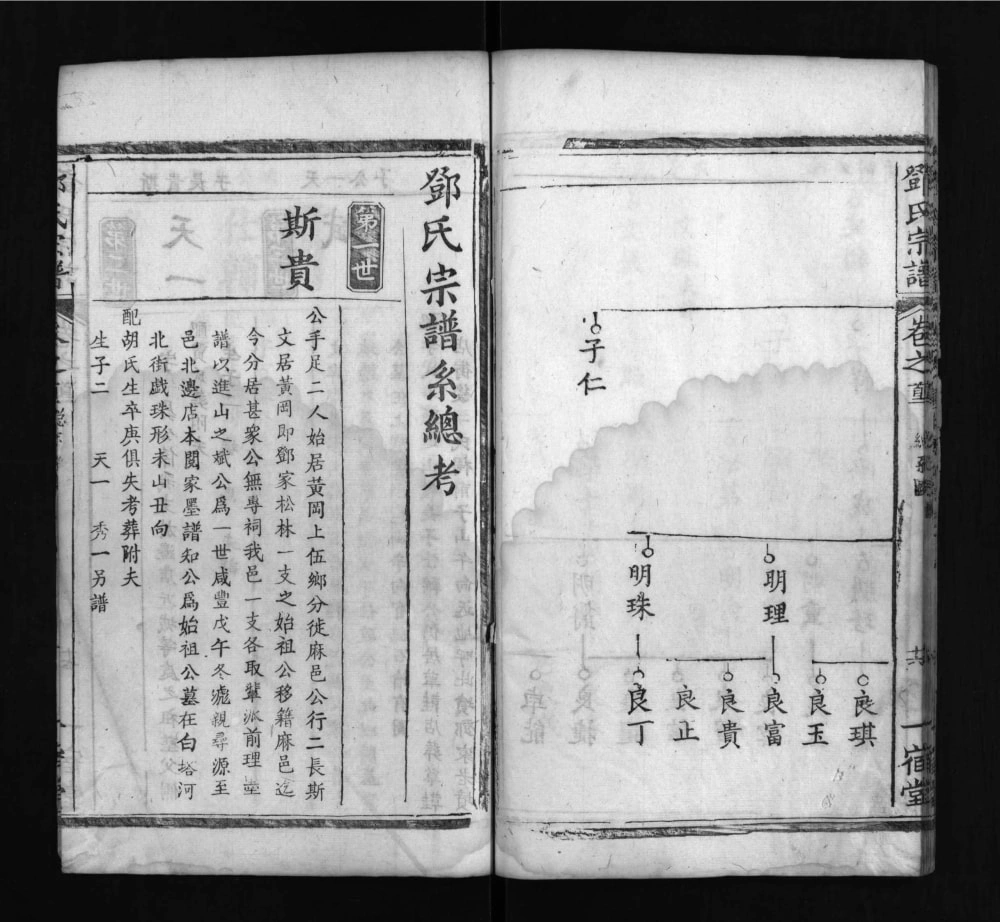 鄧氏宗譜
卷之首
一宿堂
子仁
明理
明珠
良琪
良玉
良富
良貴
良正
良丁
鄧氏宗譜系總考
第一世
斯貴
公手足二人始居黃岡上伍鄉分徙麻邑公行二長斯
文居黃岡即鄧家松林一支之始祖公移籍麻邑迄
今分居甚衆公無專祠我邑一支各取輩派前理
譜以進山之斌公爲一世咸豐戊午冬親尋源至
邑北邊店本閱家墨譜知公爲始祖公墓在白塔河
北街戯珠形未山丑向
配胡氏生卒庚俱失考葬附夫
生子二 天一 秀一另譜